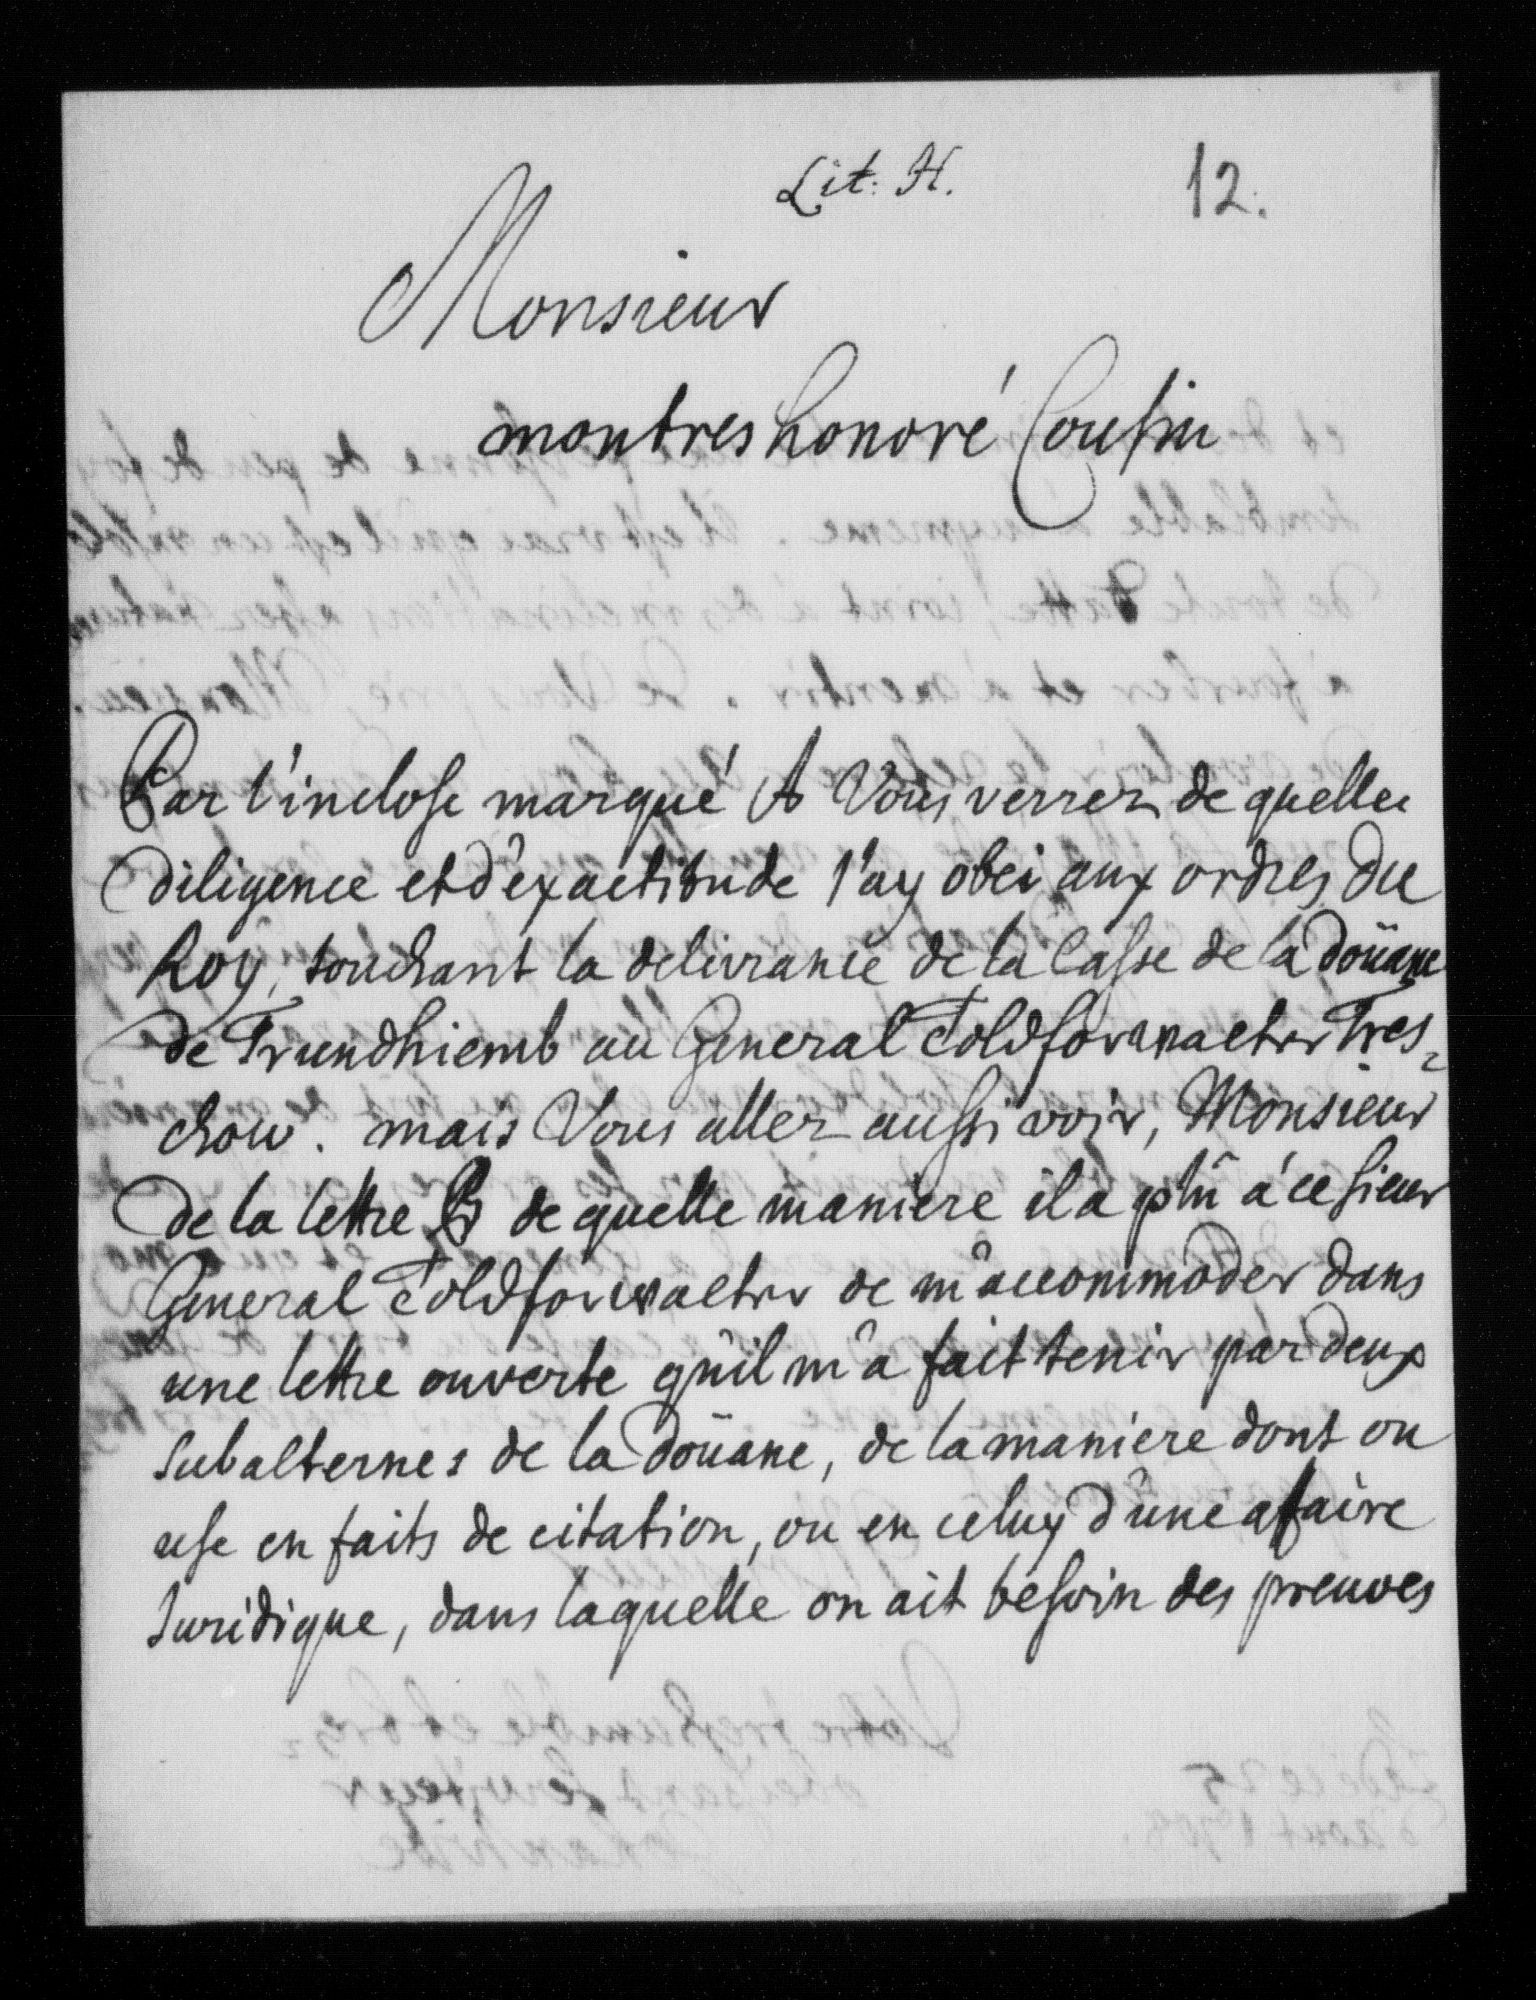 Lit: H. 12.
Monsieur
montres honoré Cousin
Par l'inclose marqué A Vous verrez de quelle
diligence et d'éxactitude j'ay obei aux ordres du
Roy, touchant la delivrance de la Casse de la doüane
de Trundhiemb au General Toldforwalter Tres-
chow. mais Vous allez aussi voir, Monsieur
de la lettre B de quelle maniere il a plû a'ce sieur
General Toldforwalter de m'accommoder dans
une lettre ouverte qu'il m'a fait tenir par deux
subalternes de la doüane, de la maniere dont on
use en faits de citation, ou en celuy d'une afaire
Juridique, dans laquelle on ait besoin des preuves